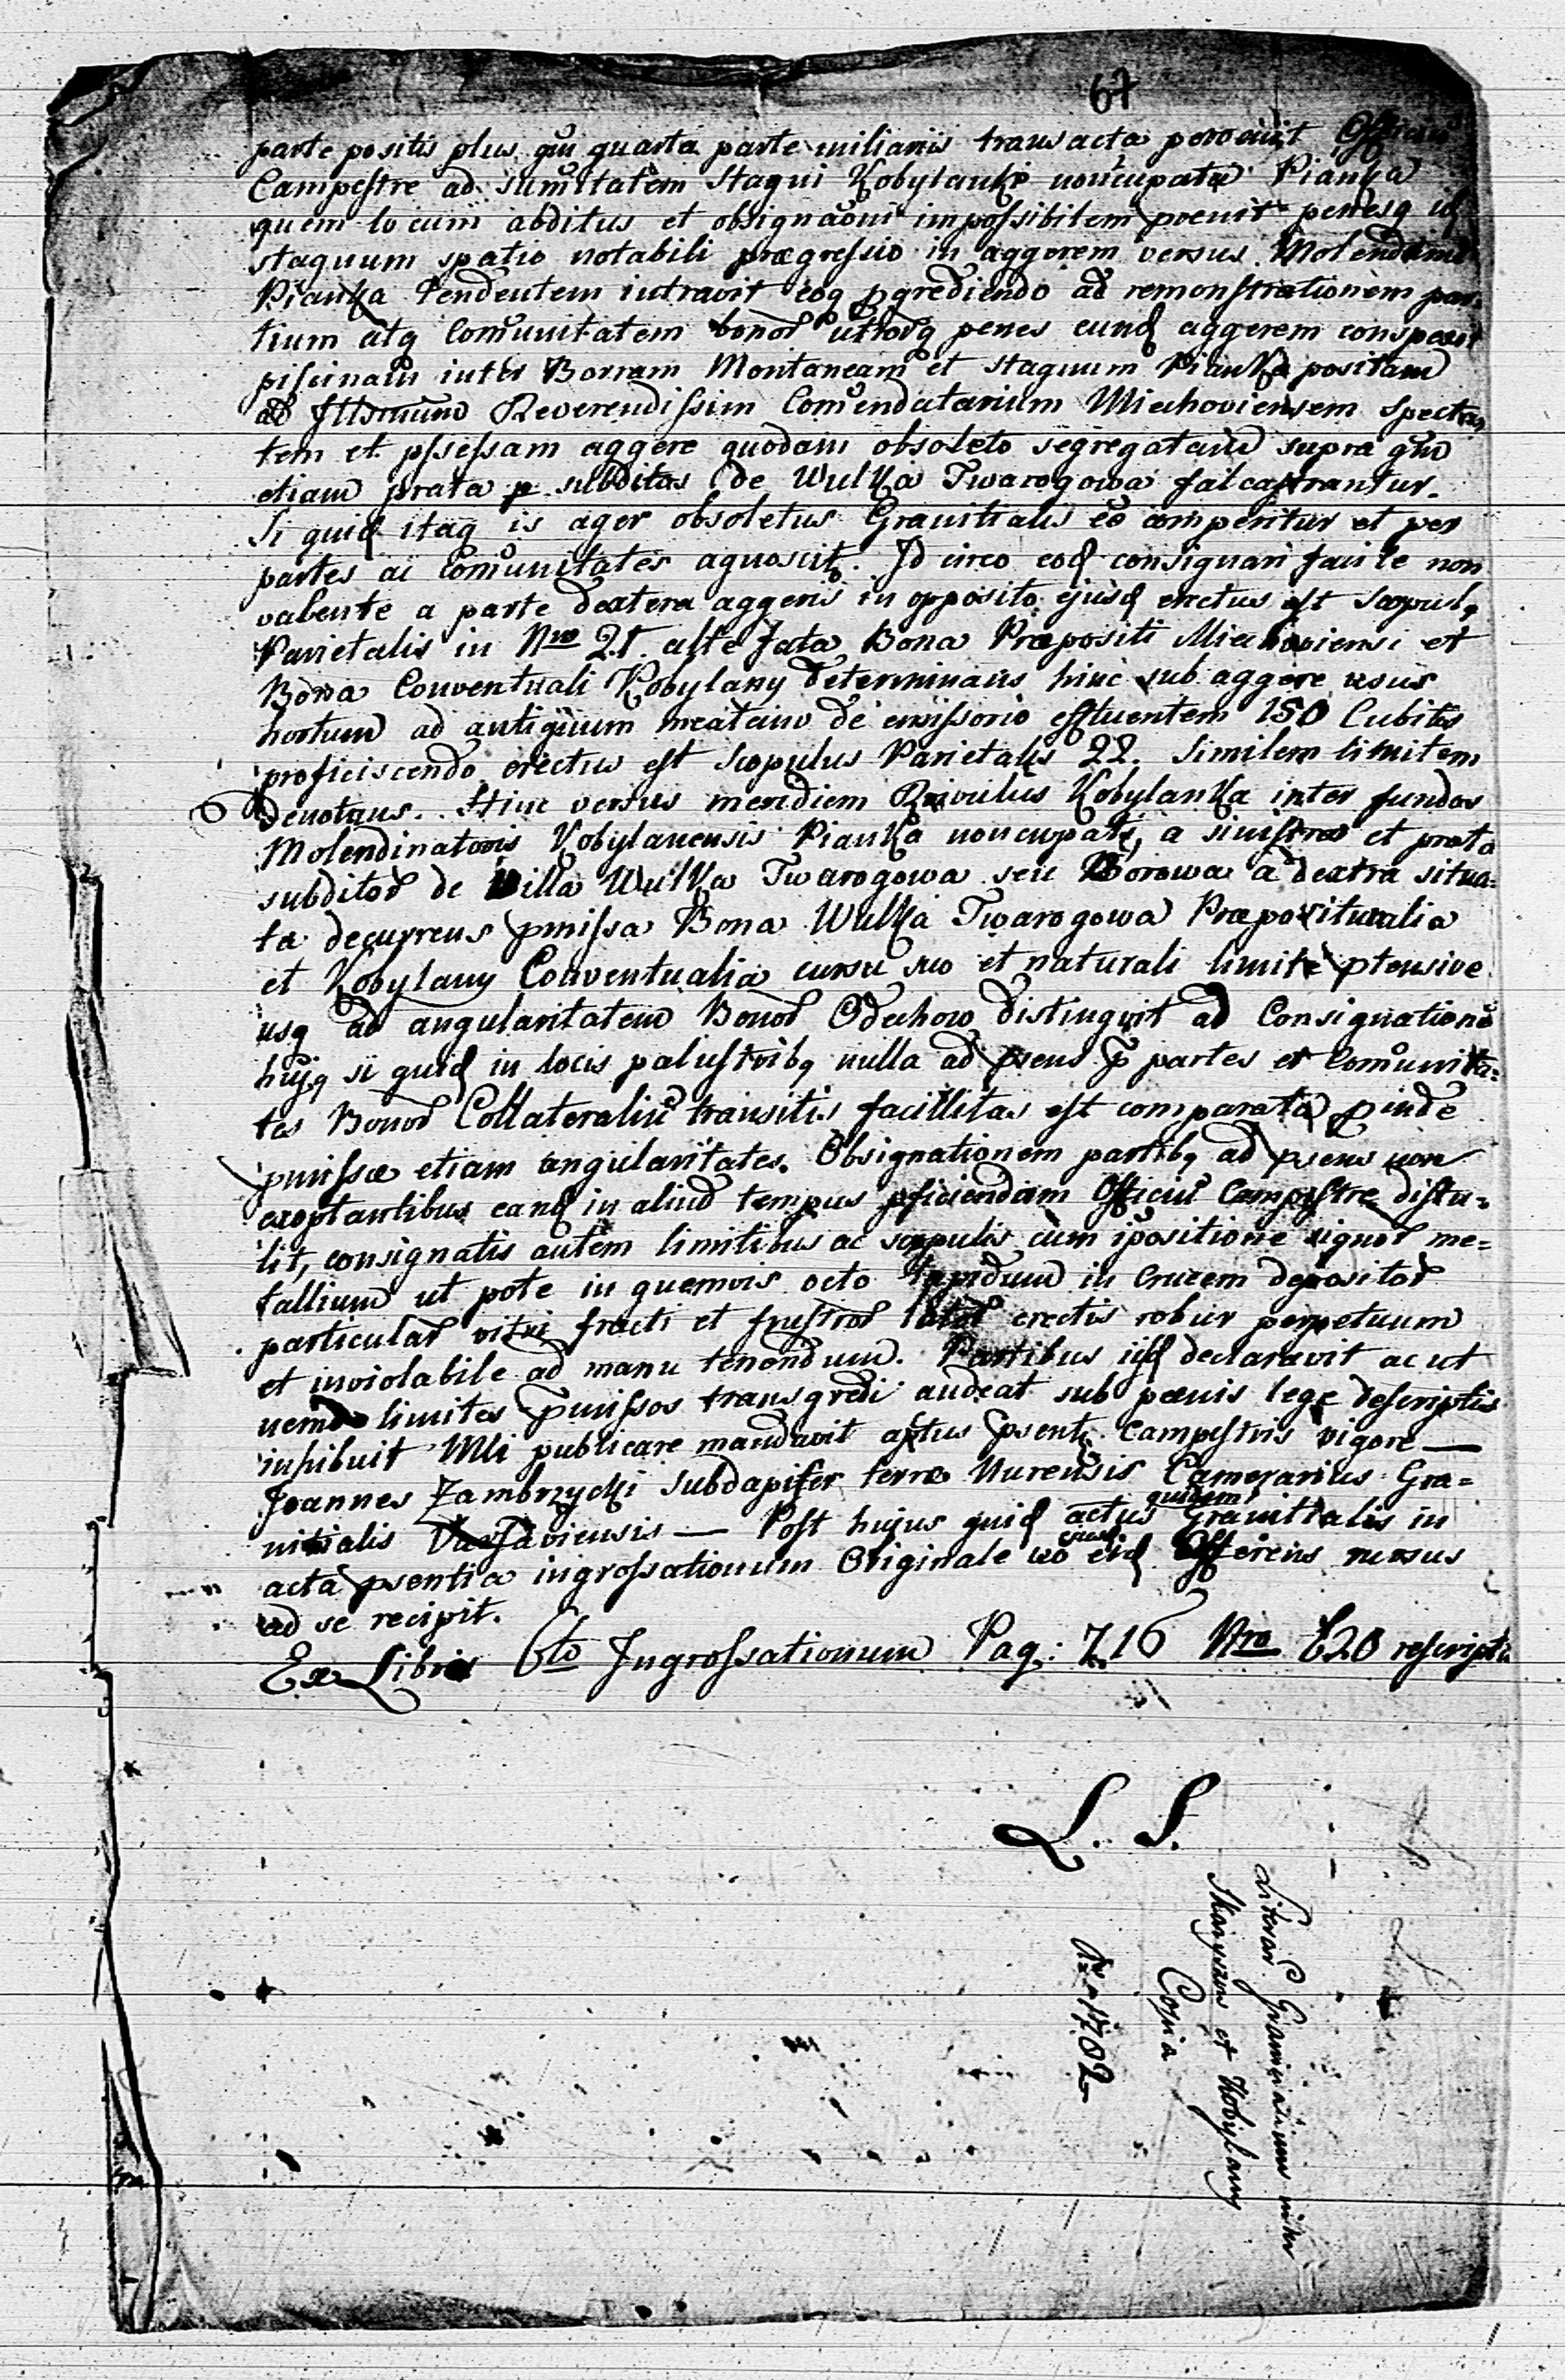 67
parte positis plus qm quarta parte miliaris transacta pervenit Officiū
Campestre ad sumitatem stagni Kobylanki noncupata Pianka
quem locum abditus et obsignaoni impossibilem poenit penesq id
stagnum spatio notabili prægressio in aggerem versus Molendinū
Pianka tendentem intravit eoq pgrediendo ad remonstrationem par-
tium atq Comunitatem bonor utrorq penes eund aggerem conspexit
piscinam inter Borram Montaneam et stagnum Pianka positam
ad Illsmum Reverendissim Comendatarium Miechoviensem spectan
tem et pssessam aggere quodam obsoleto segregatam supra qm
etiam prata p subditos de Wulka Twarogowa falcastrantur.
Si quid itaq is ager obsoletus Granitialis eo comperitur et per
partes ac comunitates agnoscit. Id circo eod consignari facile non
valente a parte dextera aggeris in opposito ejusd erectus est scopulq
Parietalis in Nro 21. alte fata Bona Præpositi Miechoviensi et
Bona Conventuali Kobylany determinans hinc sub aggere usus
hortum ad antiquum meatum de emissorio effluentem 150 Cubitos
proficiscendo erectus est scopulus Parietalis 22. Similem limitem
denotans. Hinc versus meridiem Rivulus Kobylanka inter fundos
Molendinatoris Kobylanensis Pianka noncupati, a sinistra et prata
subditor de Villa Wulka Twarogowa seu Borowa a dextra situa=
ta decurrens pmissa Bona Wulka Twarogowa Præposituralia
et Kobylany Conventualia cursu suo et naturali limite ptensive
usq ad angularitatem Bonor Odechow distinguit ad Consignationē
hujq si quid in locis palustribq nulla ad psens p partes et Comunita=
tes Bonor Collateraliū transitis facillitas est comparata pinde
pmissæ etiam angularitates. Obsignationem partibq ad psens non
exoptantibus eand in aliud tempus pficiendam Officiū Campestre distu=
lit, consignatis autem limitibus ac scopulis cum ipositione signor me=
tallium ut pote in quemvis octo lapidum in Crucem depositor
particular vitri fracti et frustror later erectis robur perpetuum
et inviolabile ad manu tenendum. Partibus iisd declaravit ac ut
nemo limites pmissos transgredi audeat sub pænis lege descriptis
inhibuit Mli publicare mandavit actus psentis Campestris vigore —
Joannes Zambrzycki subdapifer terræ Nurensis Camerarius Gra=
nitialis Varsaviensis — Post hujus quid actus quidem Granitialis in
acta psentia ingrossationum Originale eo eid Offerens rursus
ad se recipit.
Ex Libro 6to Ingrossationum Pag: 716 Nro 620 rescripta
L. S.
Literar Granicialium inter
Skaryszew et Kobylany
Copia
1702